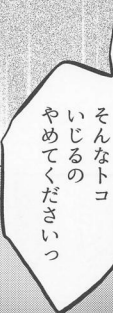 そんなトコ
いじるの
やめてくださいっ